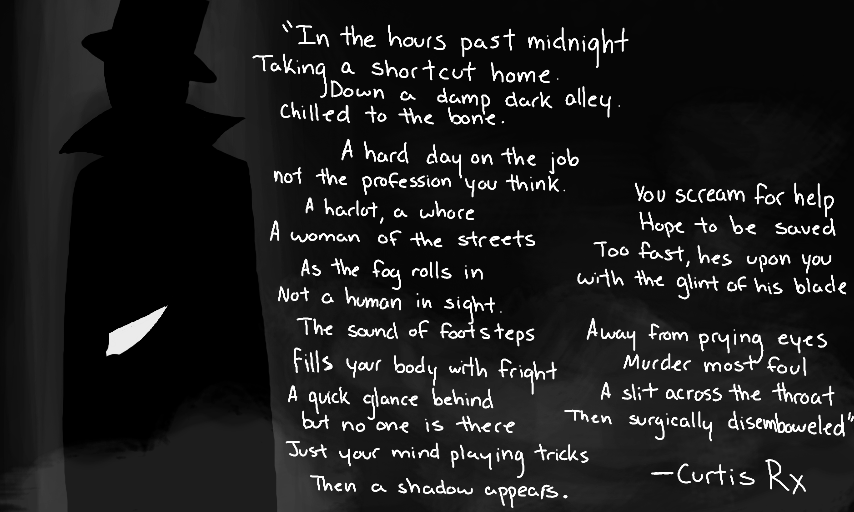 "In the hours past midnight
Taking a shortcut home.
Down a damp dark alley.
Chilled to the bone.
A hard day on the job
not the profession you think.
A harlot, a whore
A woman of the streets
As the fog rolls in
Not a human in sight.
The sound of footsteps
fills your body with fright
A quick glance behind
but no one is there
Just your mind playing tricks
Then a shadow appears.
You scream for help
Hope to be saved
Too fast, hes upon you
with the glint of his blade
Away from prying eyes
Murder most foul
A slit across the throat
Then surgically disemboweled"
—Curtis Rx